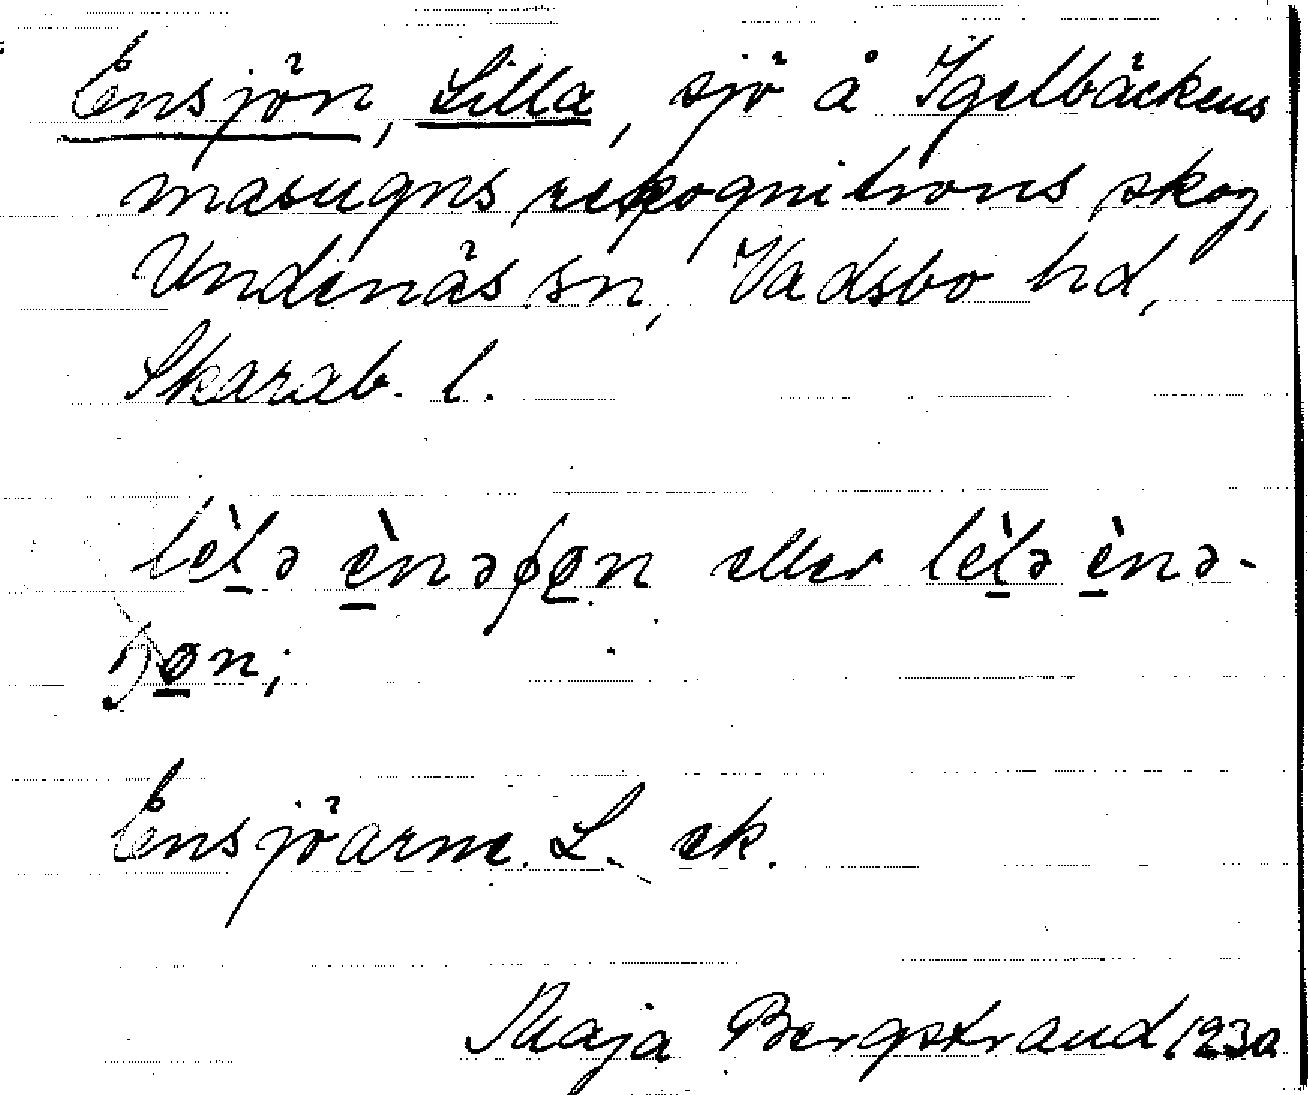 Ensjön, Lilla, sjö å Igelbäckens
masugns rekognitions skog,
Undenäs sn, Vadsbo hd,
Skarab. l.
lèlə ènəʃøn eller lèlə ènə-
ʃøn;
Ensjöarne. L. ek.
Maja Bergstrand 1930